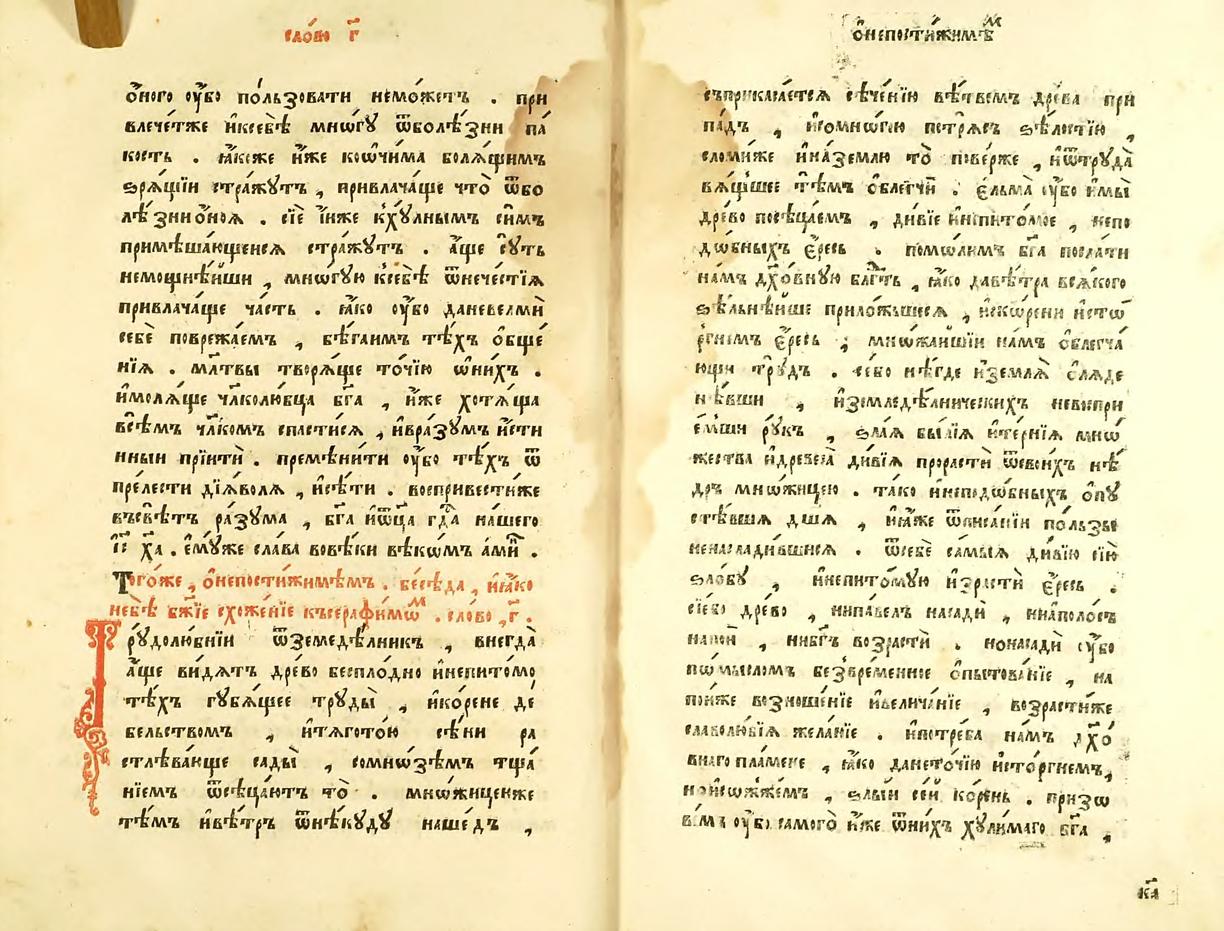 сло́во г҃
ѻ҆́ного ᲂу҆̀бо по́льзовати немо́жетъ . при
влече́тже и҆ксебѣ̀ мно́гꙋ ѿболѣ́зни па́
кость . ꙗ҆́коже и҆́же ко ѻ҆чи́ма болѧ́щимъ
зрѧ́щїи стра́жꙋтъ , привлача́ще что̀ ѿбо
лѣ́зни о҆́ноѧ . сїѐ и҆́же к̾хꙋ́лнымъ си́мъ
примѣша́ющеисѧ стра́жꙋтъ . а҆́ще сꙋ́ть
немощнѣ́йши , мнѡ́гꙋю ксебѣ̀ ѿнече́стїѧ
привлача́ще ча́сть . ꙗ҆́ко ᲂу҆̀бо даневелмѝ
себѐ повреж́аемъ , бѣ́гаимъ тѣ́хъ ѻ҆бще
нїѧ . мл҃твы творѧ́ще то́чїю ѡ҆ни́хъ .
и҆молѧ́ще чл҃колю́бца бг҃а , и҆́же хотѧ́ща
всѣ́мъ чл҃комъ спасти́сѧ , и҆вра́зꙋмъ и҆́сти
нныи прїитѝ . премѣни́ти ᲂу҆̀бо тѣ́хъ ѿ
пре́лести дїѧ́волѧ , и҆сѣ́ти . воспривести́же
въсвѣ́тъ ра́зꙋма , бг҃а и҆ѻ҆ц҃а гд҃а на́шего
і҆с҃ х҃а . є҆мꙋ́же сла́ва вовѣ́ки вѣкѡ́мъ а҆ми́н .
Того́же , ѻ҆непостижи́мѣмъ . бесѣ́да , и҆ꙗ҆́ко
небѣ̀ бж҃їе схоже́нїе къ серафи́мѡм . сло́во , г҃ .
Трꙋдолю́бнїи ѿземедѣ́лникъ , внегда̀
а҆́ще ви́дѧтъ дре́во беспло́дно и҆непито́мо
тѣ́хъ гꙋбѧ́щее трꙋды̀ , и҆ко́рене де
бельствомъ , и҆тѧ́гото́ю сѣ́ни ра
стлѣва́юще сады̀ , сомно́зѣмъ тща́
нїемъ ѿсѣца́ютъ то̀ . мнѡ́жиценже
тѣ́мъ и҆вѣ́тръ ѿнѣ́кꙋдꙋ наше́дъ ,
ѻ҆непости́жимѣм
съприкаса́етсѧ сѣче́нїю вѣ́твемъ дре́ва при
па́дъ , и҆сомно́гою петрѧ́съ ѕѣ́лостїю ,
сломи́же и҆на́землю то̀ пове́рже , и҆ѿтрꙋда̀
вѧ́щшее тѣ́мъ ѻ҆блегчѝ . є҆льма̀ ᲂу҆̀бо и҆мы̀
дре́во посѣца́емъ , ди́вїе и҆непито́мое , непо
до́бныхъ є҆́ресь . помо́лимъ бг҃а посла́ти
на́мъ дх҃о́внꙋю блг҃ть , ꙗ҆́ко давѣ́тра всѧ́кого
ѕѣльнѣ́йше прило́жьшесѧ , и҆скѡ́рени и҆стѡ́
ргнемъ є҆́ресь ; мнѡ́жайшїи на́мъ ѻ҆блегча́
ющи трꙋ́дъ . се́бо нѣ́где и҆землѧ̀ ѻ҆лѧде
нѣ́вши , и҆земледѣ́лническихъ невоспри
е́мши рꙋ́къ , ѕла́ѧ бы́лїѧ и҆те́рнїѧ мнѡ́
жества и҆древеса̀ ди́вїѧ прорастѝ ѿсвои́хъ нѣ́
дръ мно́жицею . та́ко и҆неподо́бныхъ ѻ҆пꙋ
стѣ́вшѧ дш҃ѧ , и҆ꙗ҆́же ѿписа́нїи по́льзы
ненаслади́вшисѧ . ѿсебѐ са́мыѧ ди́вїю сїю̀
ѕло́бꙋ , и҆непито́мꙋю и҆зрастѝ є҆́ресь .
сїе́бо дре́во , нипа́велъ насадѝ , ниа҆поло́съ
напоѝ , нибг҃ъ возрастѝ . нонасадѝ ᲂу҆̀бо
по́мысломъ безвре́менное ѻ҆пытова́нїе , на
пои́же возноше́нїе и҆велича́нїе , возрасти́же
славолю́бїѧ жела́нїе . и҆потре́ба на́мъ дх҃о́
внаго пла́мене , ꙗ҆́ко дането́чїю и҆сто́ргнемъ ,
но и҆сожже́мъ , ѕлы́и се́и ко́рень . призѡ
ве́мъ ᲂу҆̀бо самого̀ и҆́же ѿни́хъ хꙋли́маго бг҃а ,
к҃а